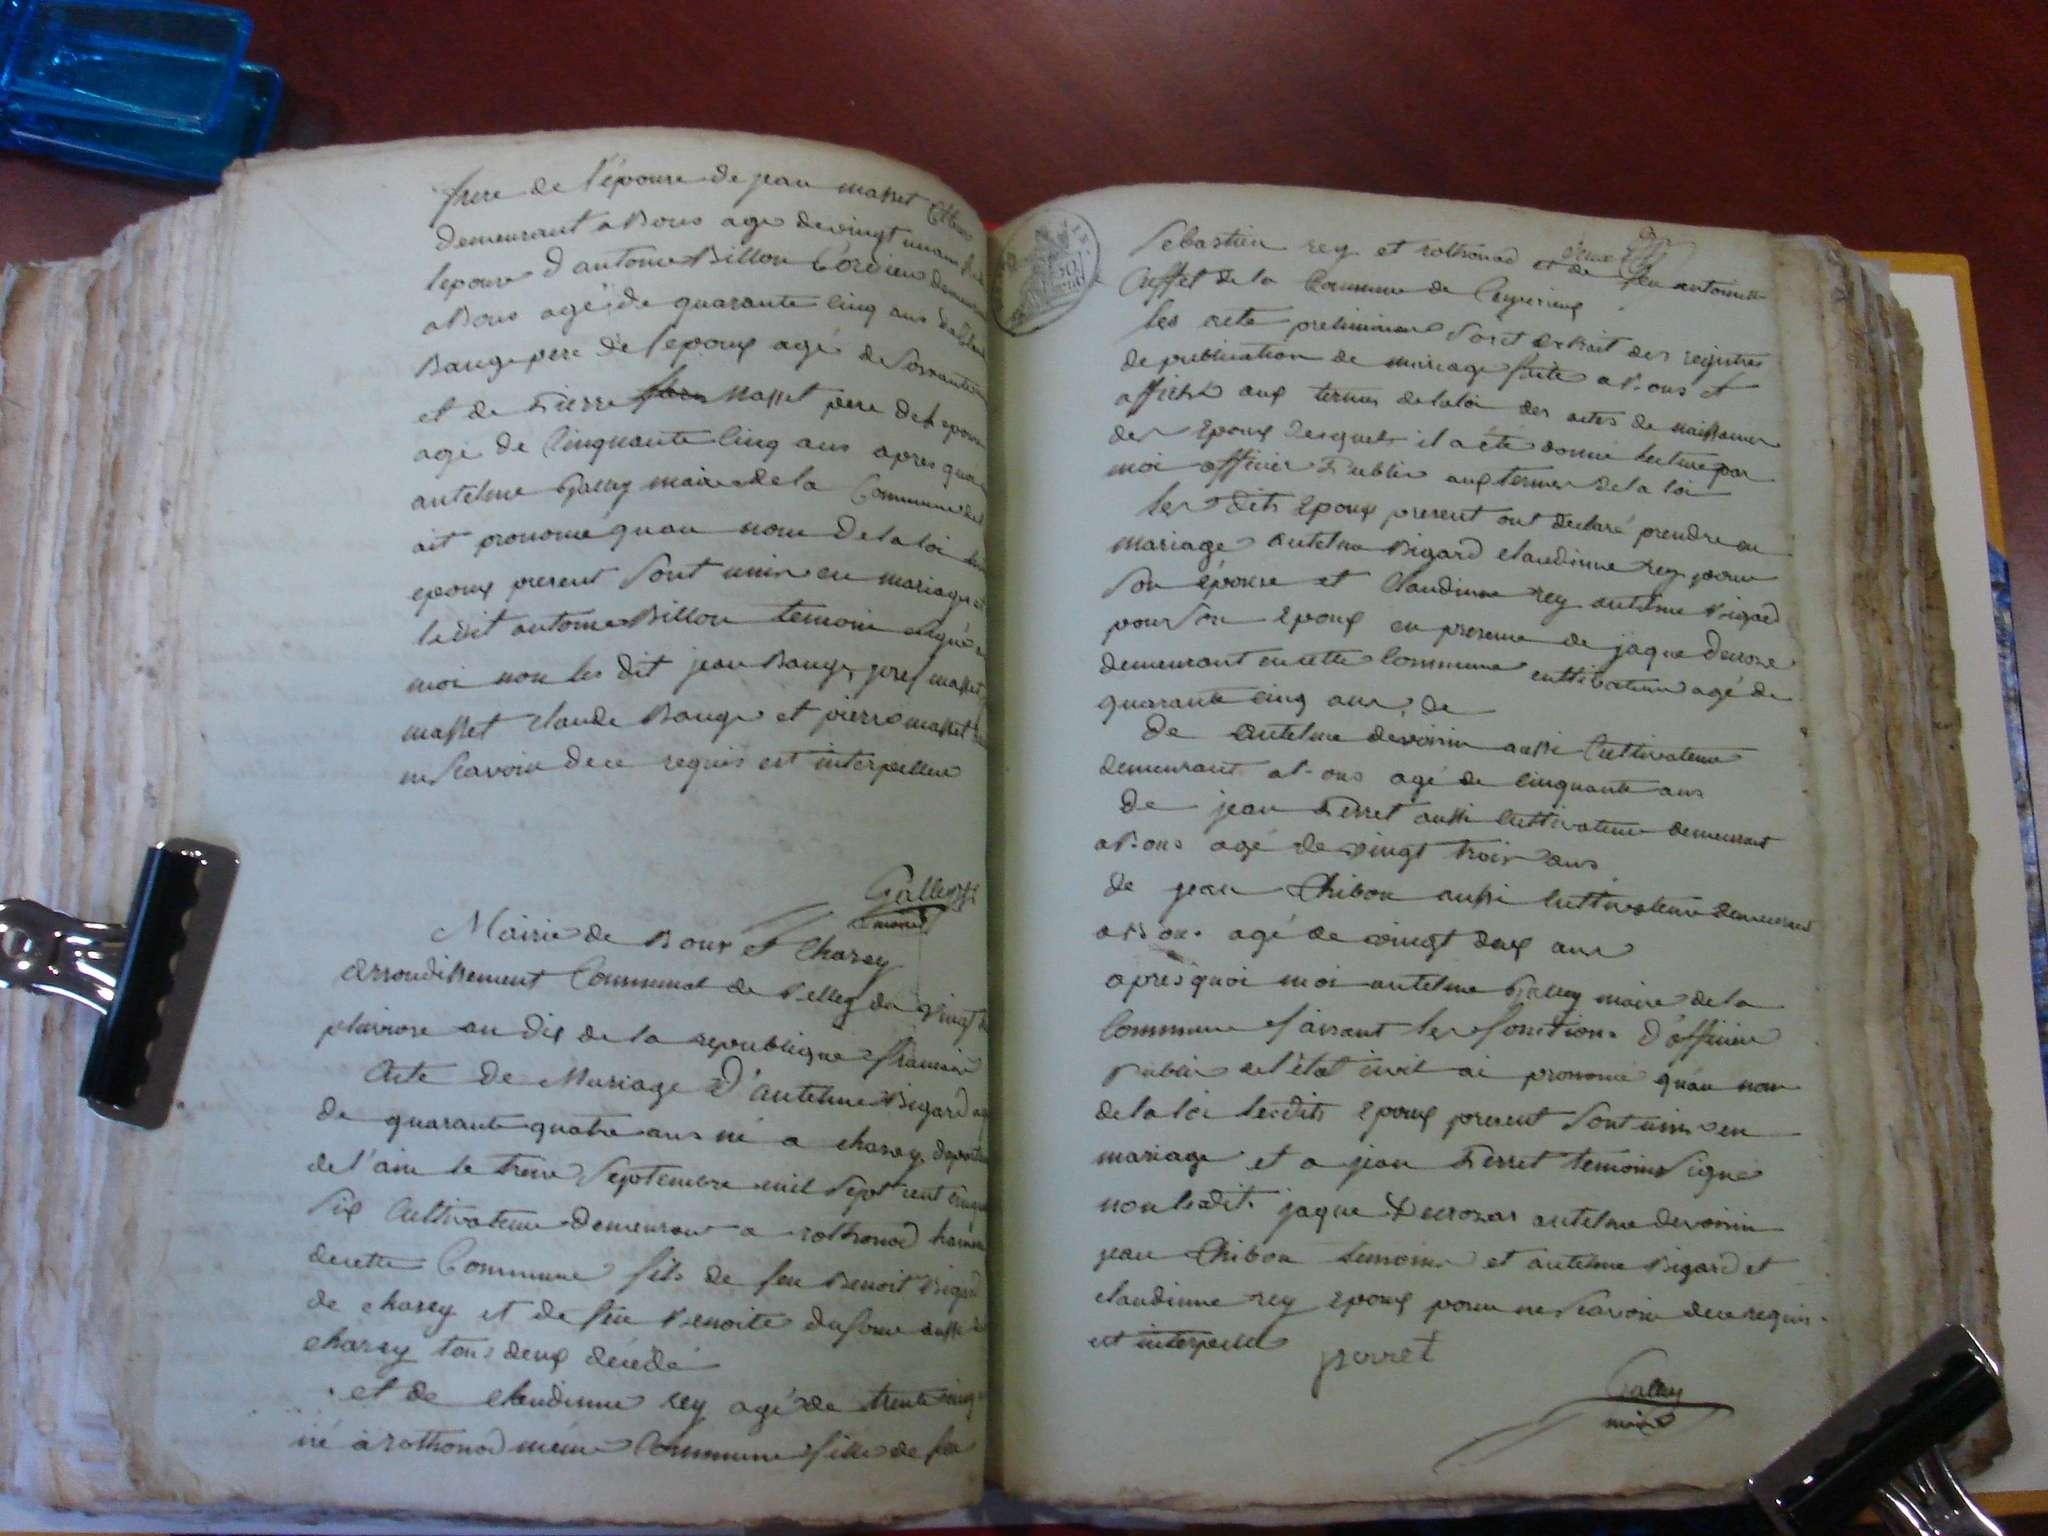 frere de l'epouse de jean masset
demeurant a Bons age de vingt un ans
lepouse d'antoine Billon Cordier demeurant
a Bons agé de quarante cinq ans de Claude
Bauge pere de l'epoux agé de soixante
et de Pierre masset pere de l'epouse
agé de Cinquante cinq ans apres quoi
antelme Gallay maire de la Commune de
ait prononcé quau nom de la loi les
epoux present sont unis en mariage et
ledit antoine Billon temoin signé
moi non les dit jean Bauge, masset
masset claude Bauge et pierre masset
ne scavoir de ce requis est interpeller
Gallay
maire
Mairie de Bons et Charey
arrondissement Communal de Belley du vingt
pluviose an dix de la republique francaise
Acte de Mariage D'antelme Bigard agé
de quarante quatre ans né a charey departement
de l'ain le treize Septembre mil sept cent cinquante
six Cultivateur demeurant a rothonod hameau
de cette Commune fils de feu Benoit Bigard
de charey et de feu Benoite dufour aussi de
charey tous deux décédé
et de claudinne rey agé de trente cinq
né a rothonod même Commune fille de feu
Sebastien rey et rothonod et de feu antoinette
Cuffet de la Commune de Ceyzerieux
les acte preliminaire sont extrait des registres
de publication de mariage faite a Bons et
affiché aux termes de la loi des actes de naissance
des epoux desquels il a été donné lecture par
moi officier Public aux termes de la loi
les dits epoux present ont declaré prendre en
mariage antelme Bigard claudinne rey pour
son épouse et Claudinne rey antelme Bigard
pour son epoux en presence de jaque Decroze
demeurant en cette Commune cultivateur agé de
quarante cinq ans, de
De antelme devoisin aussi Cultivateur
demeurant a Bons agé de cinquante ans
De jean Perret aussi cultivateur demeurant
a Bons agé de vingt trois ans
de jean Chibon aussi cultivateur demeurant
a Bons agé de vingt deux ans
apres quoi moi antelme Gallay maire de la
Commune faisant les fonctions d'officier
Public de l'état civil ai prononcé qu'au nom
de la loi lesdits epoux present sont unis en
mariage et a jean Perret temoins signé
non lesdit jaque Decrozas antelme devoisin
jean Chibon temoins et antelme Bigard et
claudinne rey epoux pour ne scavoir de ce requis
est interpellé
perret
Gallay
maire